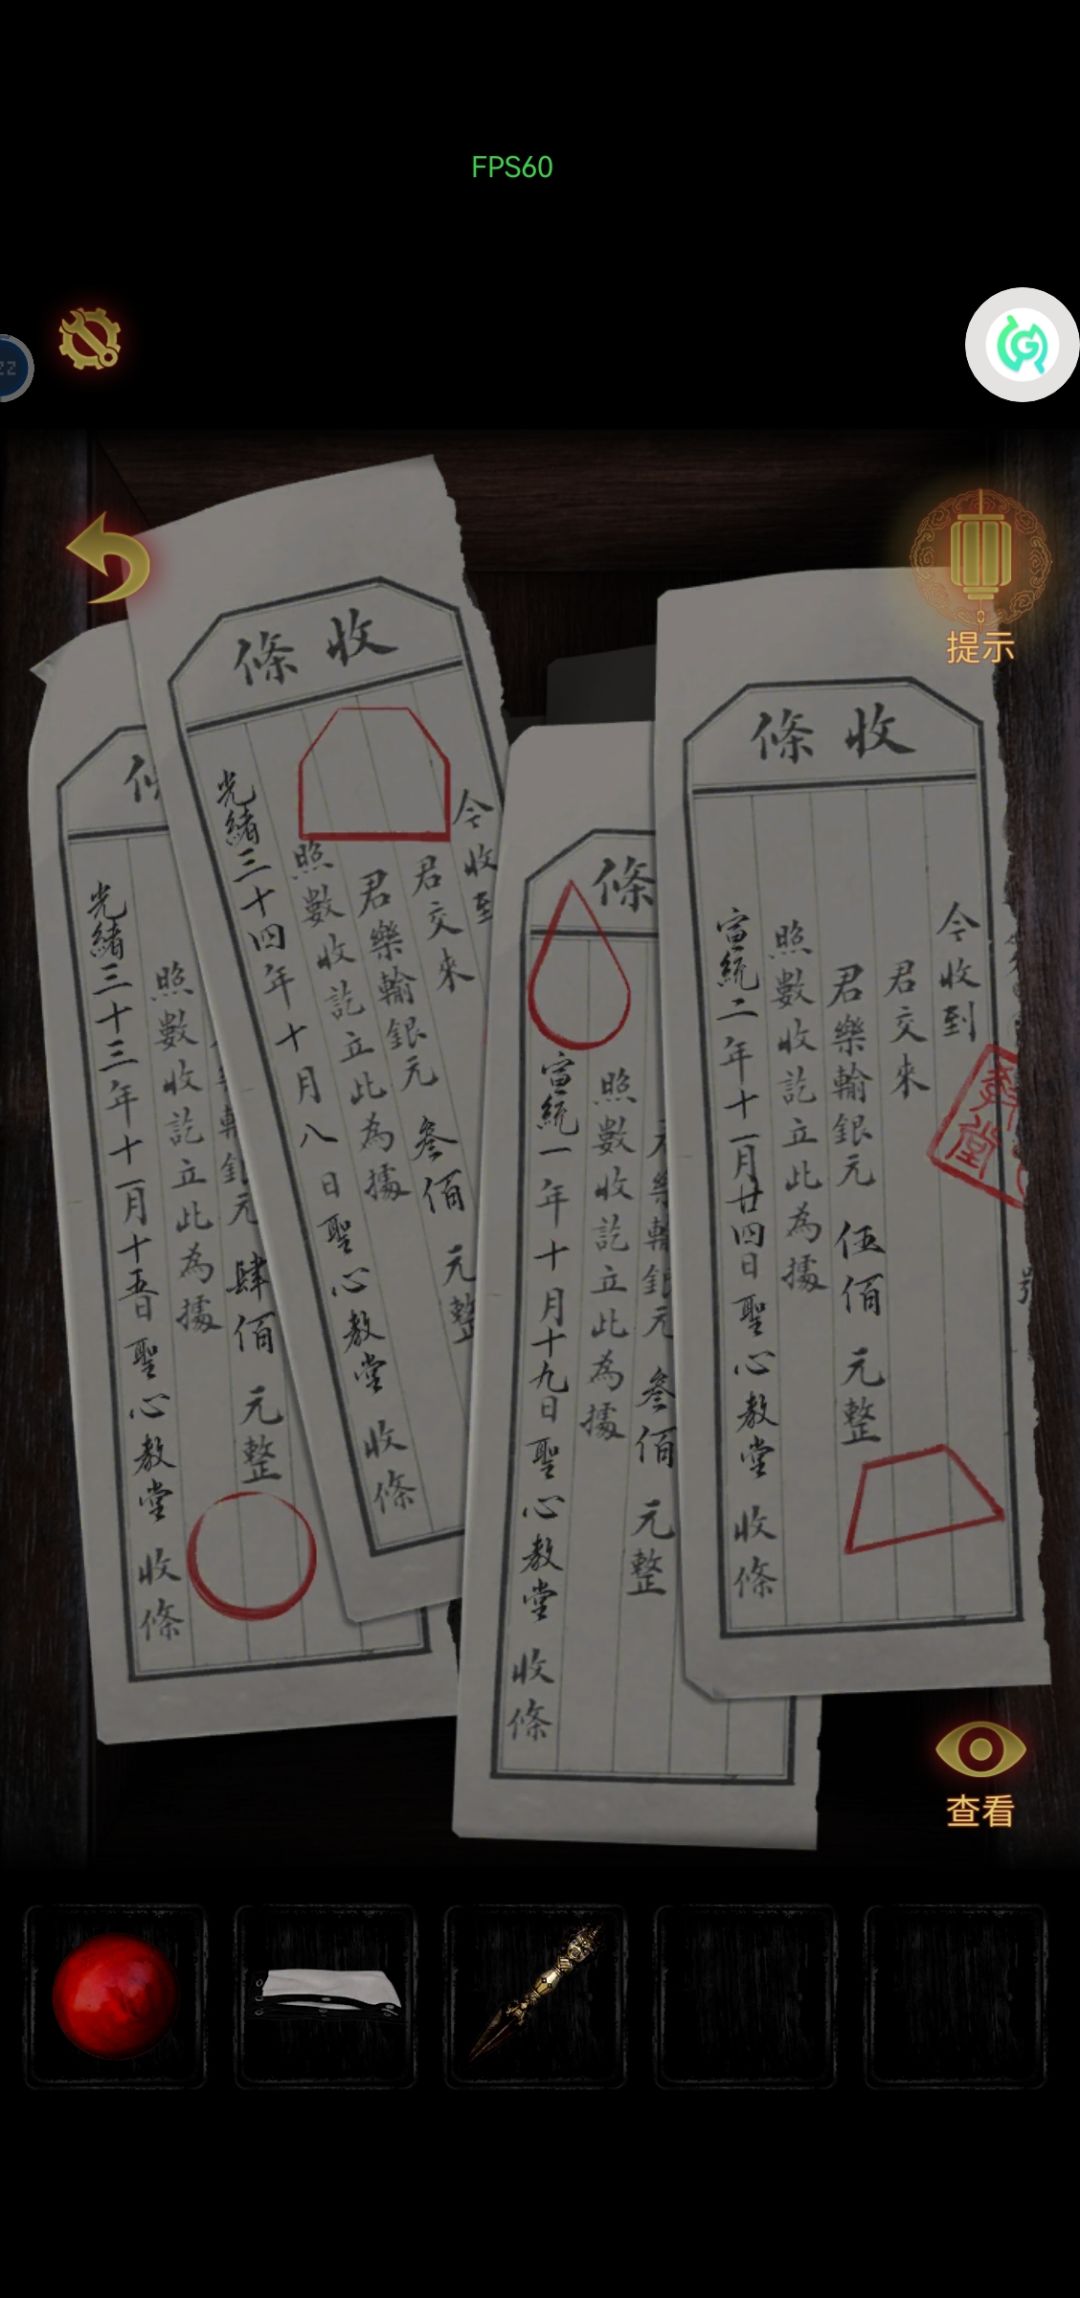 FPS60
22
提示
收條
今收到
君交來
君樂輸銀元 伍佰 元整
照數收訖立此為據
宣統二年十一月廿四日聖心教堂 收條
堂
條
元整
樂輸銀元 叁佰
照數收訖立此為據
宣統一年十月十九日聖心教堂 收條
收條
今收到
君交來
元整
君樂輸銀元 叁佰
照數收訖立此為據
光緒三十四年十月八日聖心教堂 收條
輸銀元 肆佰 元整
照數收訖立此為據
光緒三十三年十一月十五日聖心教堂 收條
查看